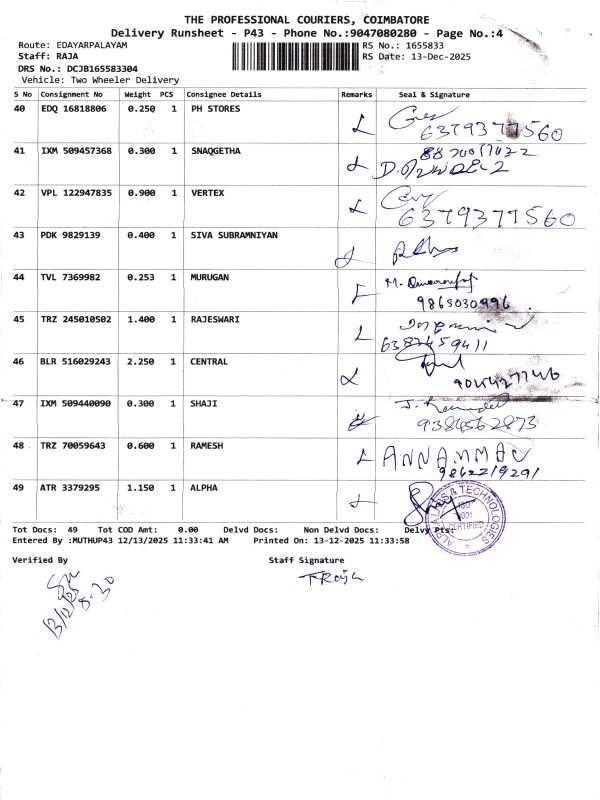 THE PROFESSIONAL COURIERS, COIMBATORE
Delivery Runsheet - P43 - Phone No.:9047080280 - Page No.:4
Route: EDAYARPALAYAM
RS No.: 1655833
Staff: RAJA
RS Date: 13-Dec-2025
DRS No.: DCJB165583304
Vehicle: Two Wheeler Delivery
S No Consignment No Weight PCS Consignee Details Remarks Seal & Signature
40 EDQ 16818806 0.250 1 PH STORES
6379377560
41 IXM 509457368 0.300 1 SNAQGETHA
42 VPL 122947835 0.900 1 VERTEX
6379377560
43 PDK 9829139 0.400 1 SIVA SUBRAMNIYAN
44 TVL 7369982 0.253 1 MURUGAN
9863030996
45 TRZ 245010502 1.400 1 RAJESWARI
6382459411
46 BLR 516029243 2.250 1 CENTRAL
47 IXM 509440090 0.300 1 SHAJI
9384562873
48 TRZ 70059643 0.600 1 RAMESH
9862219291
49 ATR 3379295 1.150 1 ALPHA
ISO
9001
CERTIFIED
Tot Docs: 49 Tot COD Amt: 0.00 Delvd Docs: Non Delvd Docs: Delvy Pts:
Entered By :MUTHUP43 12/13/2025 11:33:41 AM Printed On: 13-12-2025 11:33:58
Verified By Staff Signature
T. Raja
13/12/25
8.30